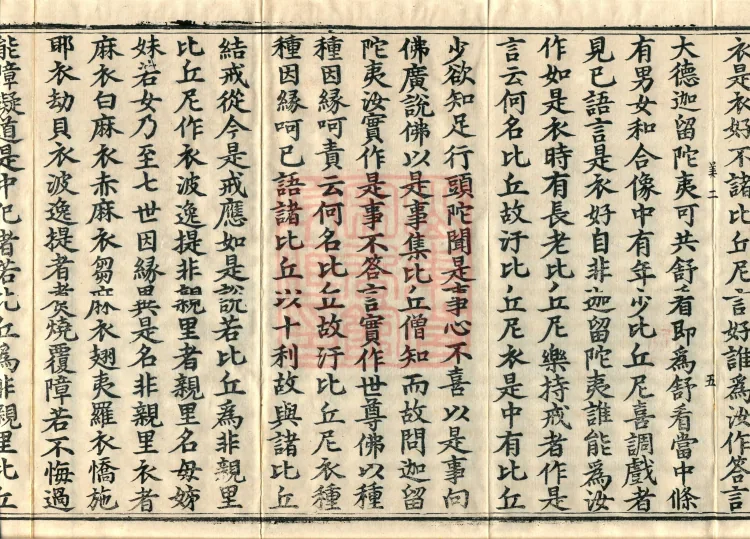 衣是衣好不諸比丘尼言好誰為汝作答言
大德迦留陀夷可共舒看即為舒看當中條
美二
五
有男女和合像中有年少比丘尼喜調戲者
見已語言是衣好自非迦留陀夷誰能為汝
作如是衣時有長老比丘尼樂持戒者作是
言云何名比丘故汙比丘尼衣是中有比丘
少欲知足行頭陀聞是事心不喜以是事向
佛廣說佛以是事集比丘僧知而故問迦留
陀夷汝實作是事不答言實作世尊佛以種
種因緣呵責云何名比丘故汙比丘尼衣種
種因緣呵已語諸比丘以十利故與諸比丘
結戒從今是戒應如是說若比丘為非親里
比丘尼作衣波逸提非親里者親里名母姊
妹若女乃至七世因緣異是名非親里衣者
麻衣白麻衣赤麻衣芻麻衣翅夷羅衣憍施
耶衣劫貝衣波逸提者煮燒覆障若不悔過
能障礙道是中犯者若比丘為非親里比丘